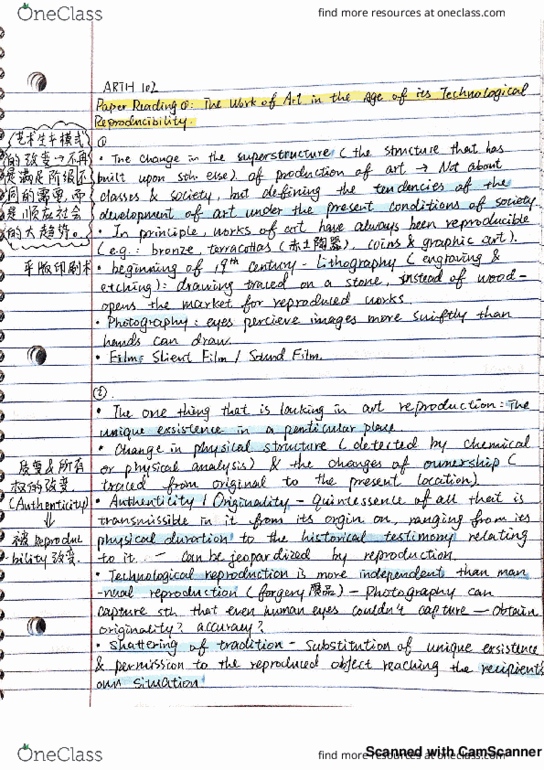 OneClass
find more resources at oneclass.com
ARTH 102
Paper Reading ①: The Work of Art in the Age of its Technological
Reproducibility.
①
艺术生产模式
的改变→不再
是满足阶级不
同的需要,而
是顺应社会
的大趋势。
• The change in the superstructure (the structure that has
built upon sth else) of production of art → Not about
classes & society, but defining the tendencies of the
development of art under the present conditions of society.
• In principle, works of art have always been reproducible
(e.g.: bronze, terracottas (赤土陶器), coins & graphic art).
平版印刷术
• beginning of 19th century - Lithography (engraving &
etching): drawing traced on a stone, instead of wood-
opens the market for reproduced works.
• Photography: eyes percieve images more swiftly than
hands can draw.
• Film: Slient Film / Sound Film.
②
• The one thing that is lacking in art reproduction: The
unique exsistence in a penticular place
• Change in physical structure (detected by chemical
or physical analysis) & the changes of ownership (
traced from original to the present location).
质变&所有
权的改变
(Authenticity)
⇓
被Reproduci
bility改变.
• Authenticity / Originality - Quintessence of all that is
transmissible in it from its orgin on, ranging from its
physical duration to the historical testimony relating
to it. — can be jeopardized by reproduction.
• Technological reproduction is more independent than man
-nual reproduction (forgery 赝品) - Photography can
capture sth. that even human eyes couldn't capture — Obtain
originality? accuracy?
• Shattering of tradition - Substitution of unique exsistence
& permission to the reproduced object reaching the recipient's
own situation
Scanned with CamScanner
OneClass
find more resources at oneclass.com